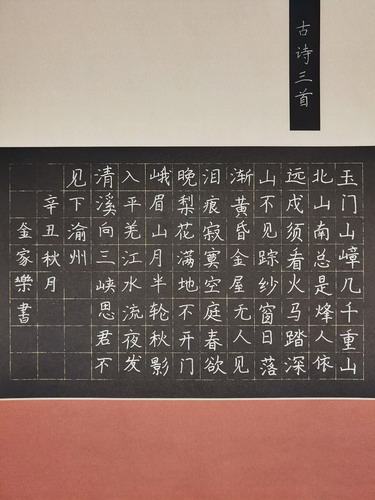 古诗三首
玉门山嶂几千重山
北山南总是烽人依
远戍须看火马踏深
山不见踪纱窗日落
渐黄昏金屋无人见
泪痕寂寞空庭春欲
晚梨花满地不开门
峨眉山月半轮秋影
入平羌江水流夜发
清溪向三峡思君不
见下渝州
辛丑秋月
金家樂書